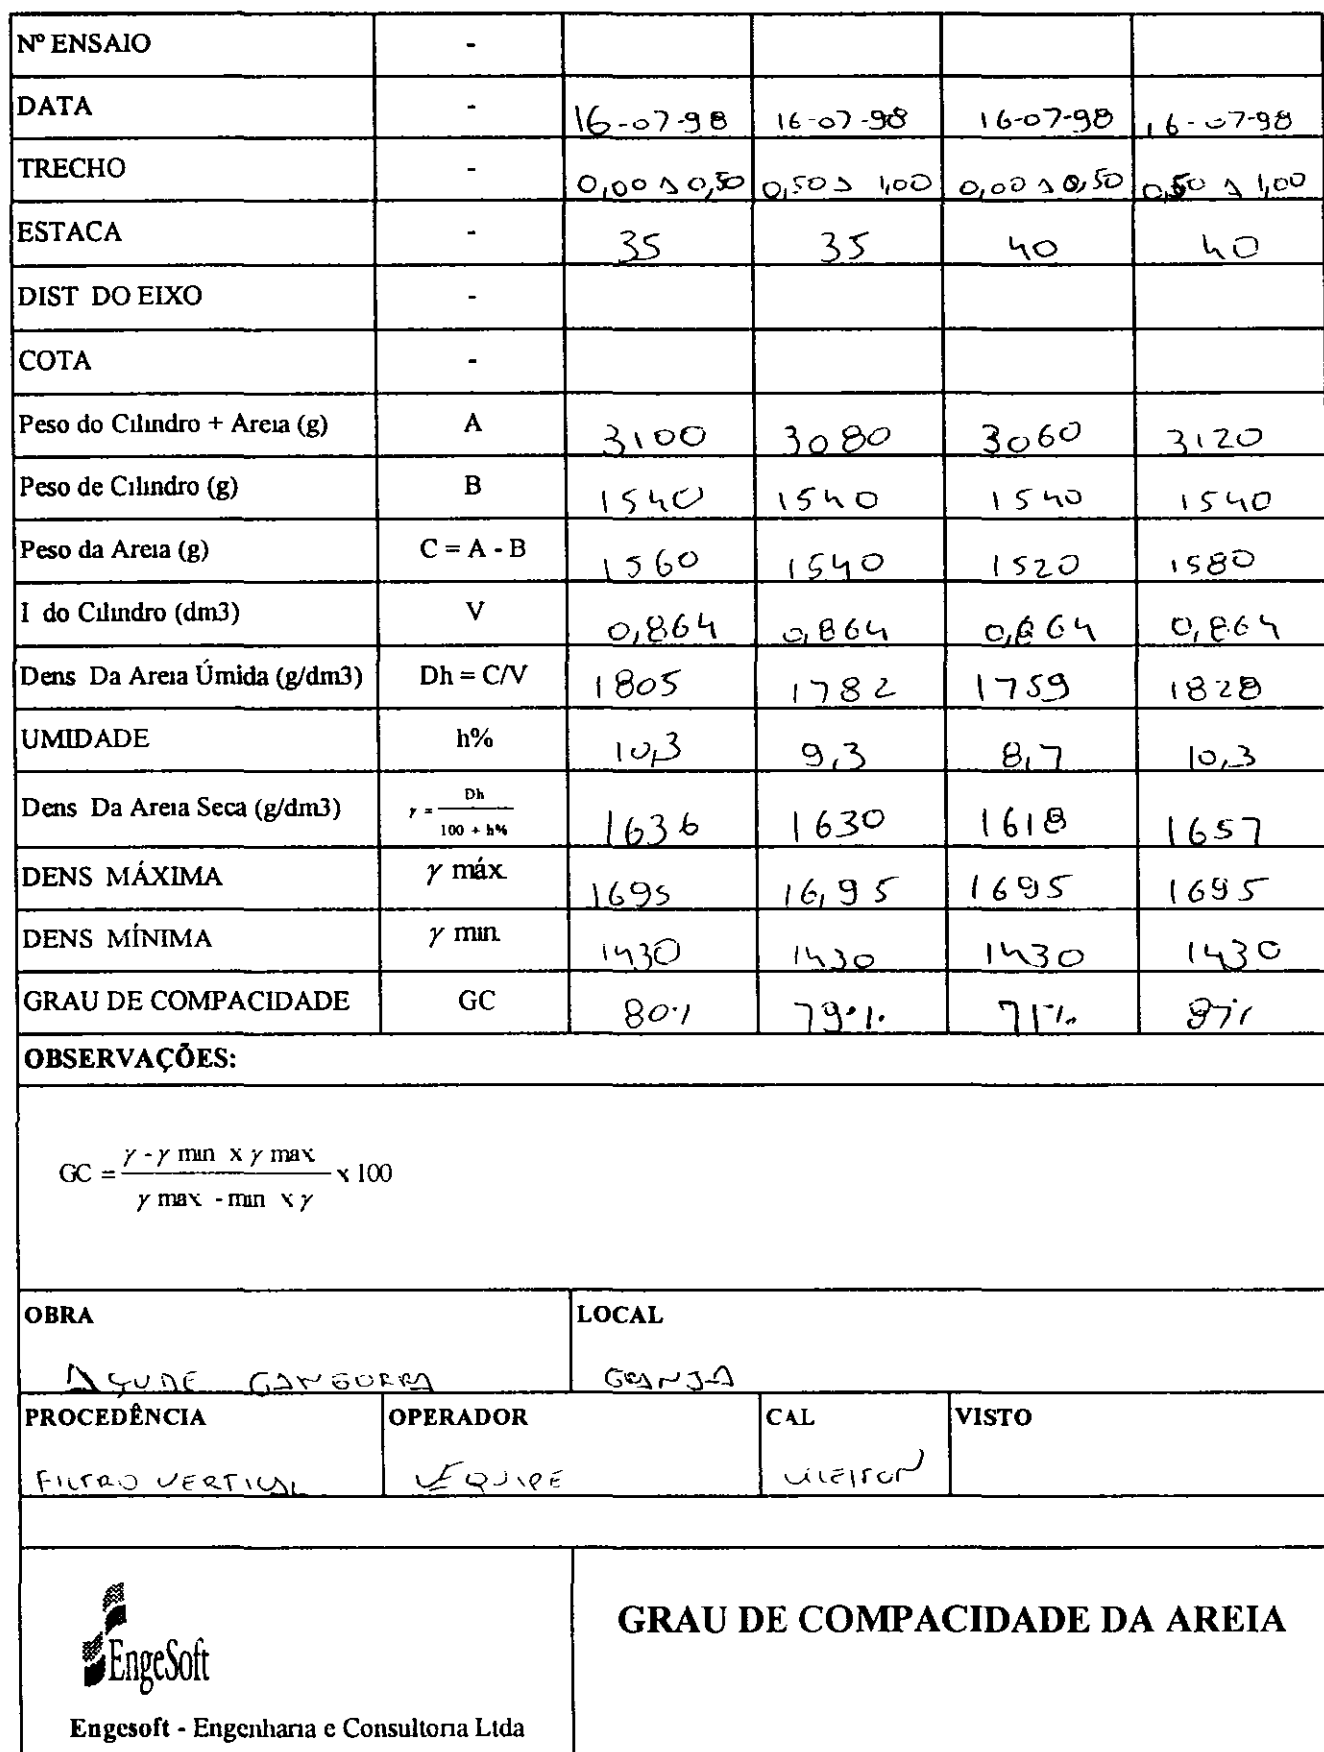 Nº ENSAIO -
DATA - 16-07-98 16-07-98 16-07-98 16-07-98
TRECHO - 0,00 A 0,50 0,50 A 1,00 0,00 A 0,50 0,50 A 1,00
ESTACA - 35 35 40 40
DIST DO EIXO -
COTA -
Peso do Cilindro + Areia (g) A 3100 3080 3060 3120
Peso de Cilindro (g) B 1540 1540 1540 1540
Peso da Areia (g) C = A - B 1560 1540 1520 1580
I do Cilindro (dm3) V 0,864 0,864 0,864 0,864
Dens Da Areia Úmida (g/dm3) Dh = C/V 1805 1782 1759 1828
UMIDADE h% 10,3 9,3 8,7 10,3
Dens Da Areia Seca (g/dm3) γ = Dh / 100 + h% 1636 1630 1618 1657
DENS MÁXIMA γ máx. 1695 16,95 1695 1695
DENS MÍNIMA γ min. 1430 1430 1430 1430
GRAU DE COMPACIDADE GC 80% 79% 71% 87%
OBSERVAÇÕES:
GC = γ - γ min x γ max / γ max - min x γ x 100
OBRA LOCAL
AÇUDE GANGORRA GRANJA
PROCEDÊNCIA OPERADOR CAL VISTO
FILTRO VERTICAL EQUIPE
EngeSoft
GRAU DE COMPACIDADE DA AREIA
Engesoft - Engenharia e Consultoria Ltda